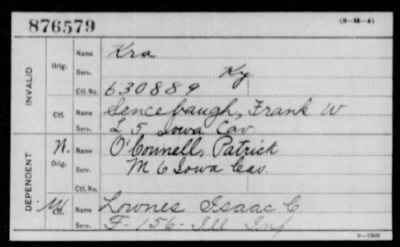 876579
(3-M-4)
INVALID
Orig.
Name Kra
Serv. Ky
Ctf. No. 630889
Ctf.
Name Sencebaugh, Frank W
Serv. L 5 Iowa Cav
DEPENDENT
N. Orig.
Name O'Connell, Patrick
Serv. M 6 Iowa Cav.
Ctf. No.
W. Ctf.
Name Lownes Isaac C
Serv. F-156-Ill Inf